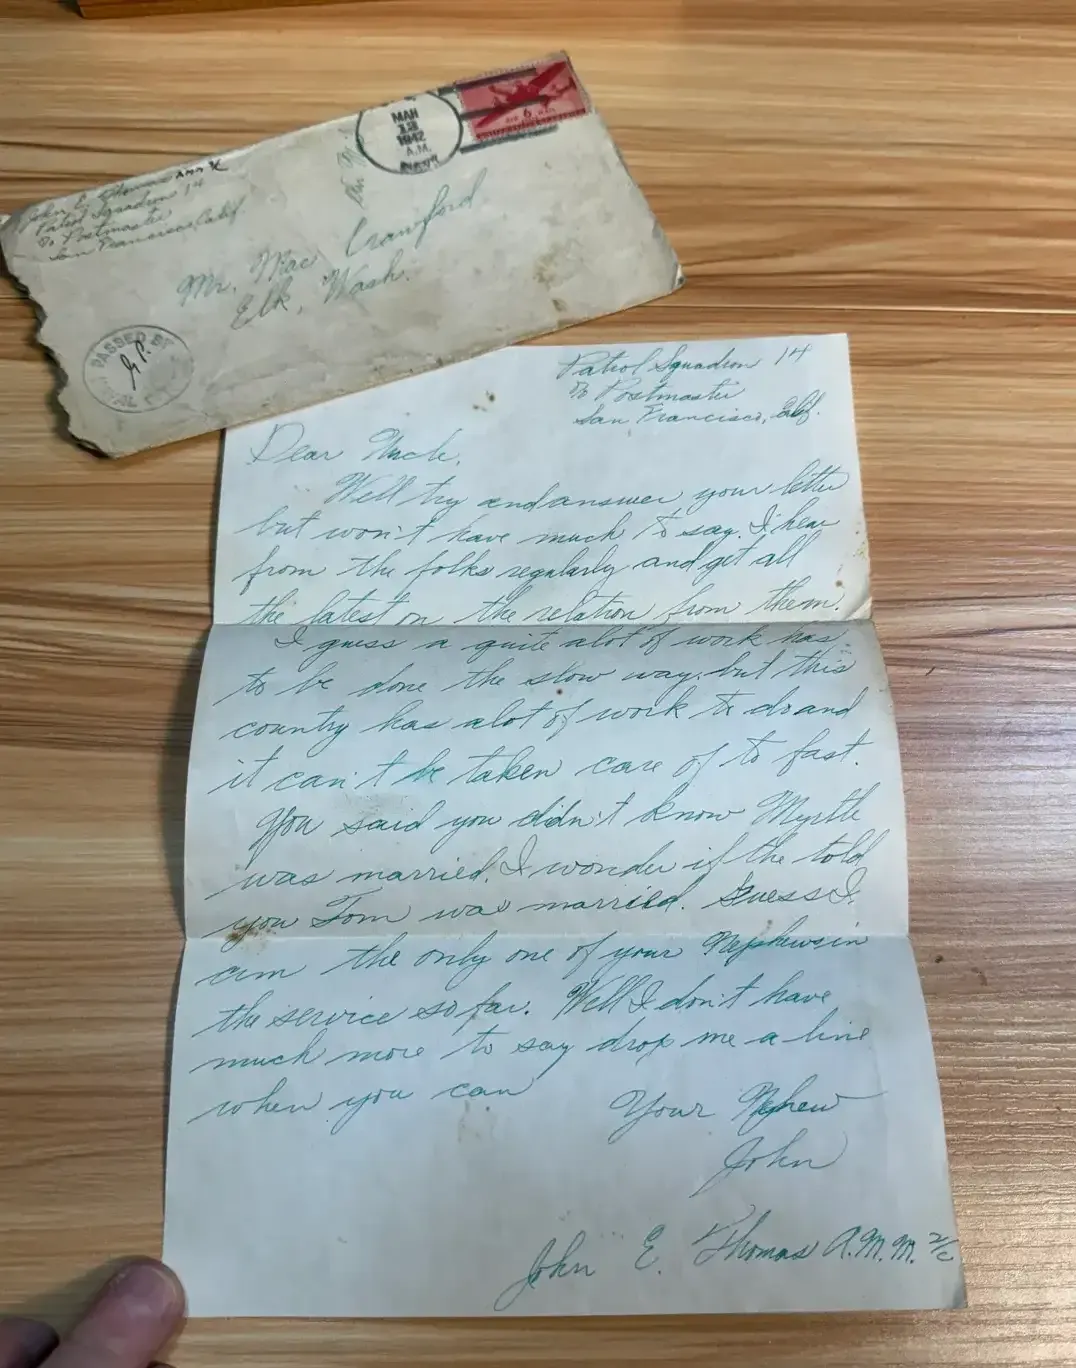 MAR
12
1942
A.M.
6
Air Mail
John E. Thomas
Patrol Squadron 14
c/o Postmaster
San Francisco, Calif.
Mr. Mac Crawford
Elk, Wash.
PASSED BY
J.P.
Patrol Squadron 14
c/o Postmaster
San Francisco, Calif.
Dear Uncle,
Well try and answer your letter
but won't have much to say. I hear
from the folks regularly and get all
the latest on the relation from them.
I guess a quite alot of work has
to be done the slow way, but this
country has alot of work to do and
it can't be taken care of to fast.
You said you didn't know Myrtle
was married. I wonder if the told
you Tom was married. Guess I
am the only one of your Nephews in
the service so far. Well I don't have
much more to say drop me a line
when you can
Your Nephew
John
John E. Thomas A.M.M. 2/c